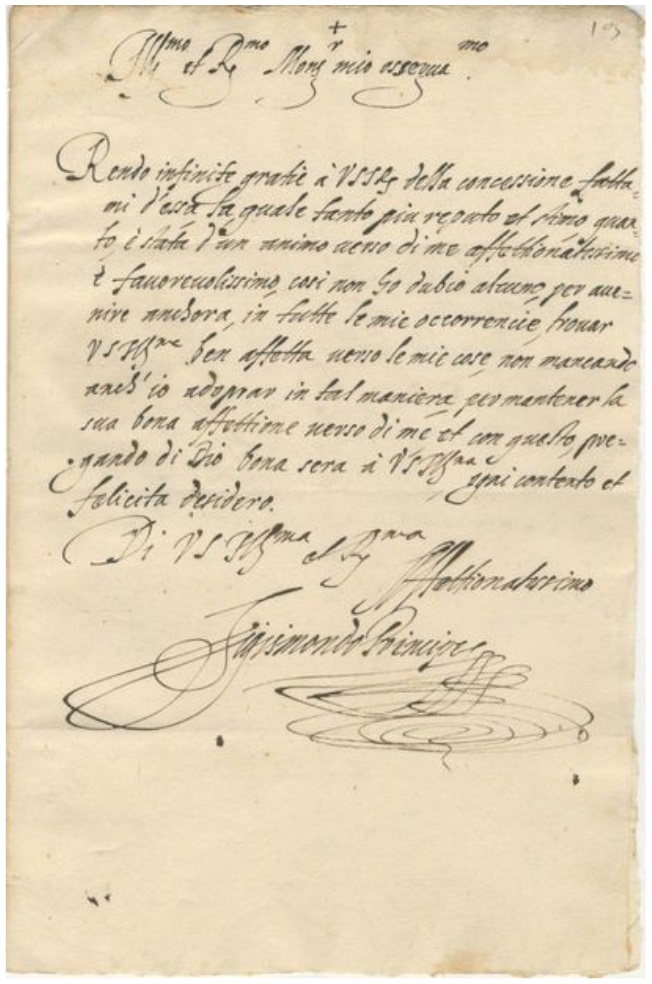 195
+
Ill^mo et R^mo Mons^r mio ossequa^mo.
Rendo infinite gratie à VSIll della concessione fatta=
mi d'essa la quale tanto piu reputo et stimo quan=
to, è stata d'un animo verso di me affettionatissimo
è favorevolissimo, cosi non ho dubio alcuno, per ave=
nire anchora, in tutte le mie occorrencie, trovar
VSIll^ma ben affetta verso le mie cose, non mancando
anch' io adoprar in tal maniera, per mantener la
sua bona affettione verso di me et con questo, pre=
gando di Dio bona sera à VSIll^ma ogni contento et
felicita desidero.
Di VS Ill^ma et R^ma
Affettionatissimo
Sigismondo Principe